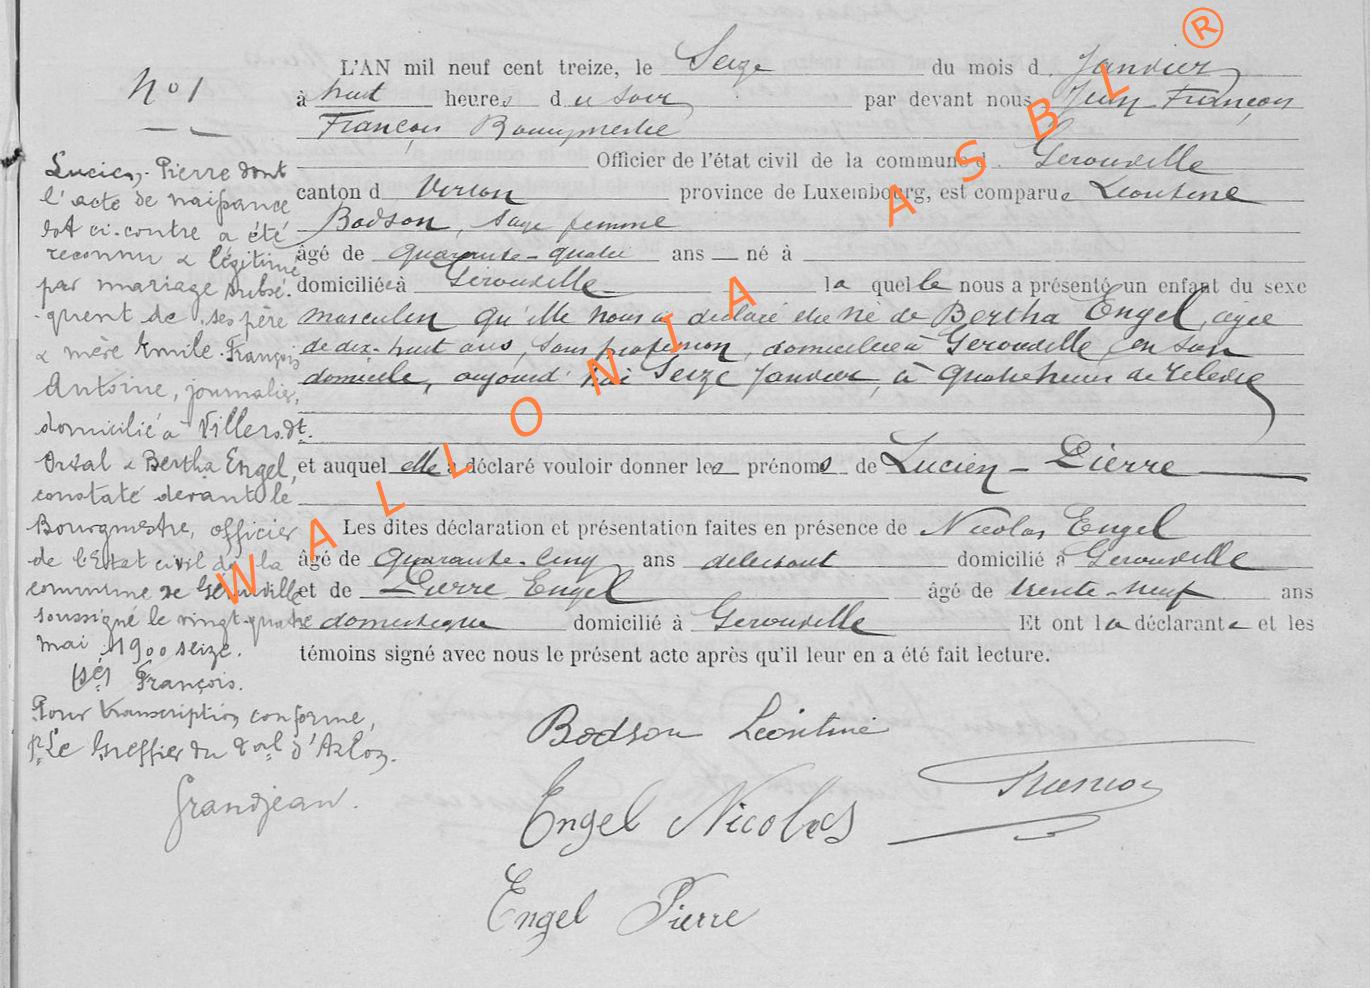 No 1
L'AN mil neuf cent treize, le Seize du mois d Janvier
à huit heures du soir par devant nous Jean François
François Bourgmestre
Officier de l'état civil de la commune d Gerouville
canton d Virton province de Luxembourg, est comparue Léontine
Bodson, sage femme
âgé de quarante-quatre ans né à
domiciliée à Gérouville la quelle nous a présenté un enfant du sexe
masculin qu'elle nous a déclaré être né de Bertha Engel, agée
de dix-huit ans, sans profession, domiciliée à Gerouville en son
domicile, aujourd'hui Seize Janvier, à quatre heures de relevée
et auquel elle a déclaré vouloir donner les prénoms de Lucien-Pierre
Les dites déclaration et présentation faites en présence de Nicolas Engel
âgé de quarante-cinq ans domicilié à Gerouville
et de Pierre Engel âgé de trente-neuf ans
domestique domicilié à Gerouville Et ont la déclarante et les
témoins signé avec nous le présent acte après qu'il leur en a été fait lecture.
Bodson Léontine
François
Engel Nicolas
Engel Pierre
Lucien-Pierre dont
l'acte de naissance
est ci-contre a été
reconnu & légitimé
par mariage subsé-
quent de ses père
& mère Emile-François
Antoine, journalier,
domicilié à Villers-dt-
Orval & Bertha Engel,
constaté devant le
Bourgmestre, officier
de l'Etat civil de la
commune de Gérouville
soussigné le vingt-quatre
mai 1900 seize.
(sé) François.
Pour transcription conforme,
Pr Le Greffier du Tral d'Arlon.
Grandjean.
WALLONIA ASBL ®